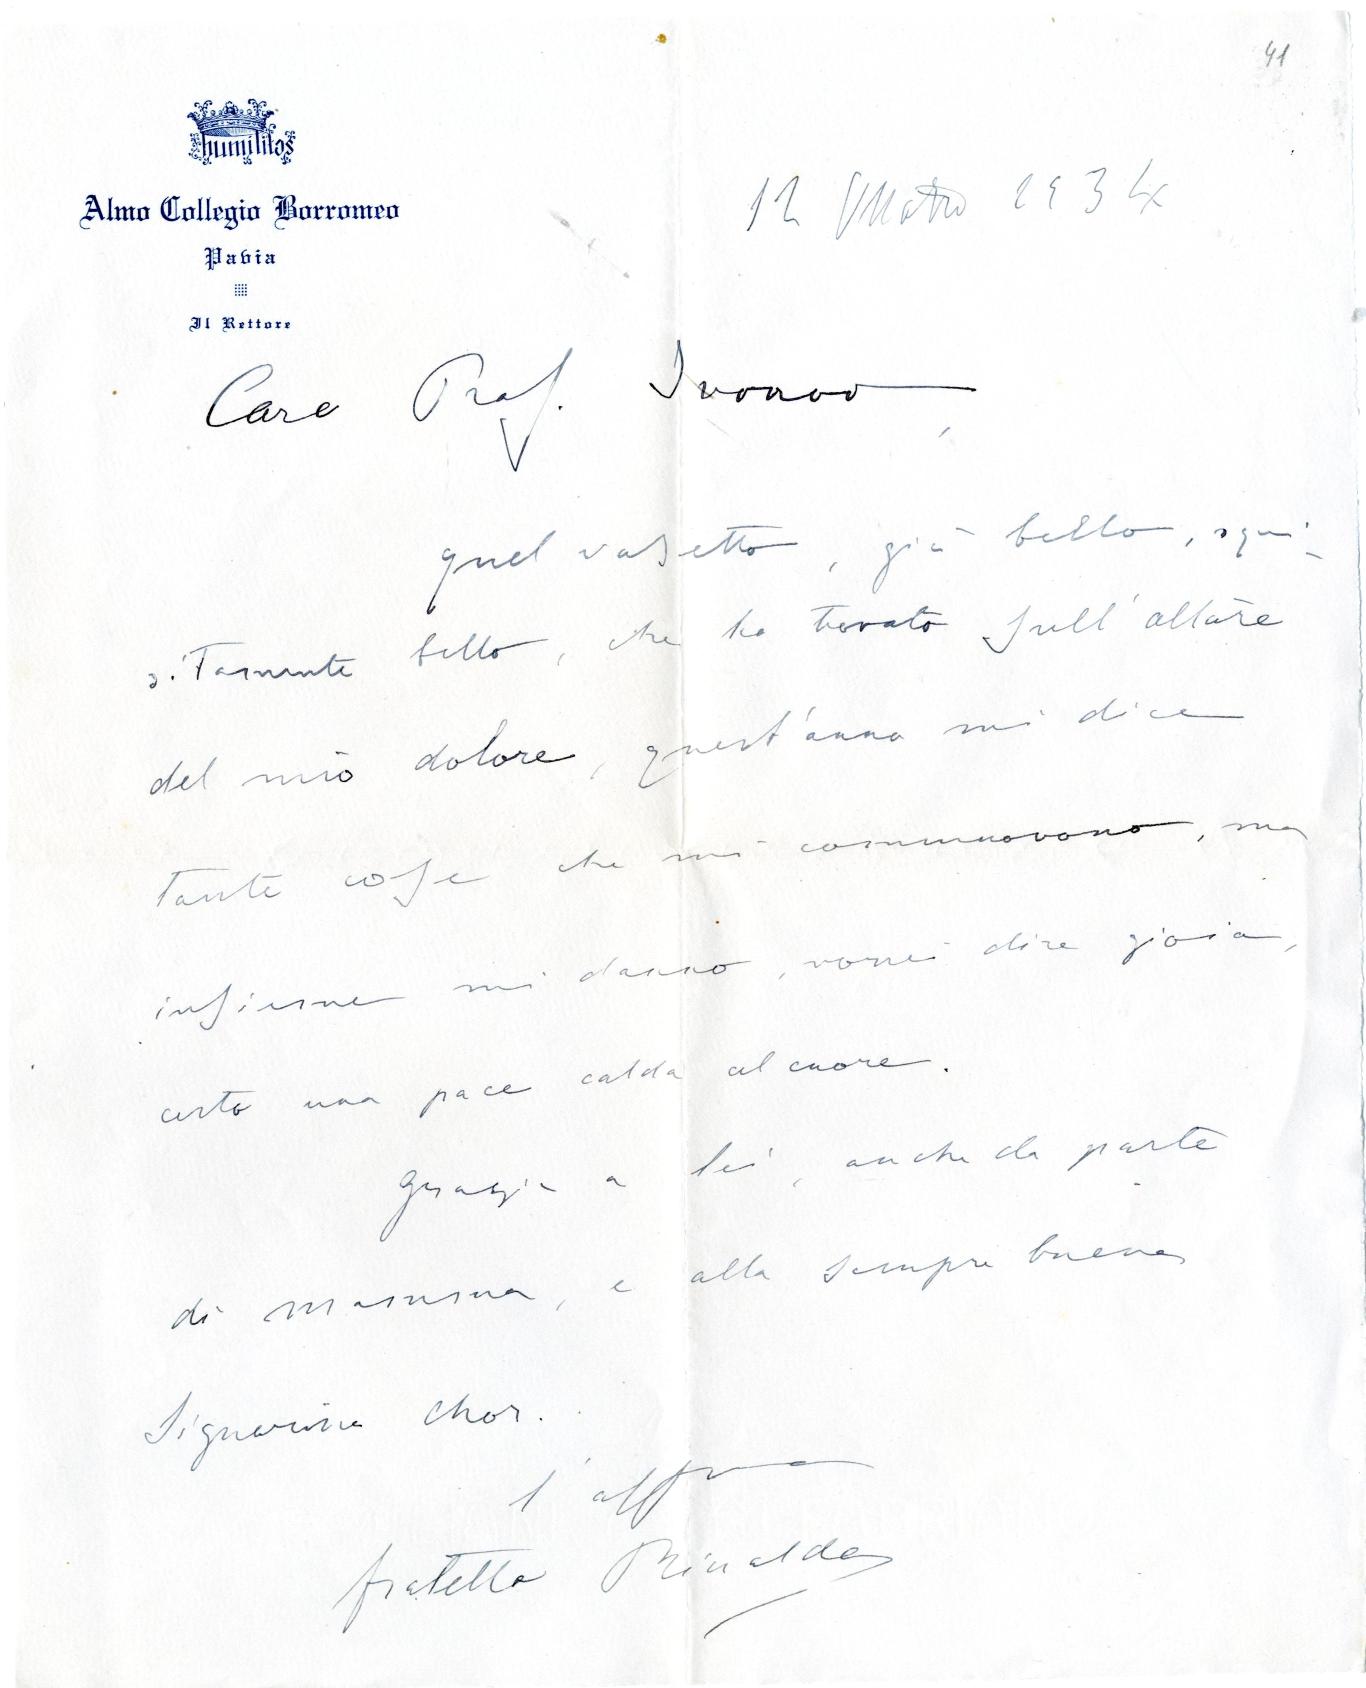 41
humilitas
Almo Collegio Borromeo
Pavia
Il Rettore
12 Marzo 1934
Caro Prof.
quel vasetto, già bello, squi-
sitamente bello, che ho trovato sull'altare
del mio dolore, quest'anno mi dice
tante cose che mi commuovono, ma
insieme mi danno, vorrei dire gioia,
certo una pace calda al cuore.
Grazie a lei, anche da parte
di mamma, e alla sempre buona
Signorina
l'aff.mo
fratello Rinaldo